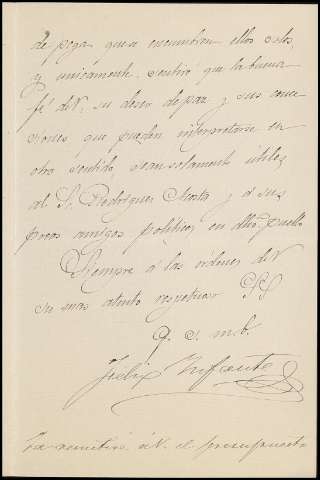 de pega que se encuentran ellos solos
y unicamente. Sentiré que la buena
fé de V. su deseo de paz y sus conce
siones que pueden interpretarse en
otro sentido, sean solamente útiles
al S. Rodríguez Acosta y á sus
pocos amigos políticos en dho. pueblo
Siempre á las órdenes de V
su mas atento respetuoso SS
q. s. m. b.
Felix Infante
Ya remitiré á V. el presupuesto